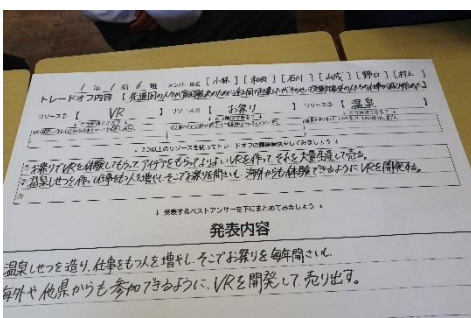 1年1組6班 メンバー氏名【小林】【和田】【石川】【山成】【野口】【村上】
トレードオフ内容【先進国の人々が
リソース① 【VR】 リソース② 【お祭り】 リソース③ 【温泉】
↓ 2つ以上のリソースを使ってトレードオフの関係解消をしてみましょう ↓
お祭りでVRを体験してもらってアイデアをもらってよりよいVRを作って、それを大量生産して売る。
温泉しせつを作って仕事をもつ人を増やし、そこでお祭りを開さいし、海外からも体験できるようにVRを開発する。
↓ 発表するベストアンサーを下にまとめてみましょう ↓
発表内容
温泉しせつを造り、仕事をもつ人を増やし、そこでお祭りを毎年開さいし、
海外や他県からも参加できるように、VRを開発して、売り出す。